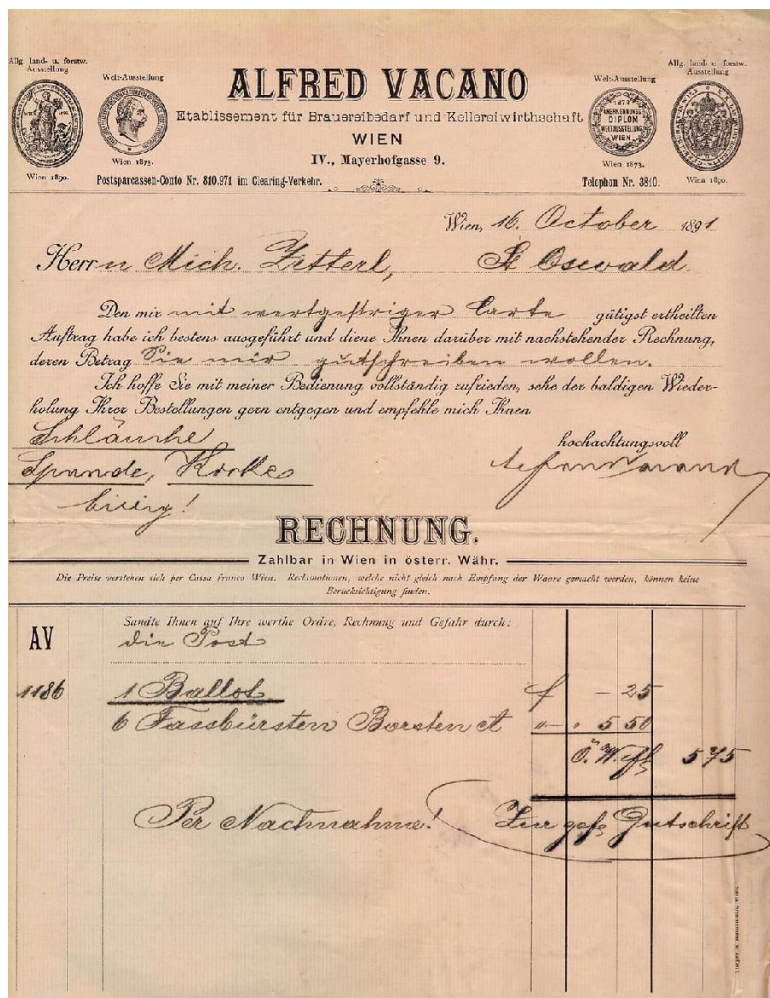 Allg. land- u. forstw.
Ausstellung
Wien 1890.
Welt-Ausstellung
Wien 1873.
ALFRED VACANO
Etablissement für Brauereibedarf und Kellereiwirthschaft
WIEN
IV., Mayerhofgasse 9.
Postsparcassen-Conto Nr. 810.971 im Clearing-Verkehr.
Welt-Ausstellung
1873
ANERKENNUNGS
DIPLOM
WELTAUSSTELLUNG
WIEN
Wien 1873.
Telephon Nr. 3810.
Allg. land- u. forstw.
Ausstellung
Wien 1890.
Wien, 16. October 1891
Herrn Mich. Zitterl, St Oswald
Den mir mit wertgestriger Carte gütigst ertheilten
Auftrag habe ich bestens ausgeführt und diene Ihnen darüber mit nachstehender Rechnung,
deren Betrag Sie mir gutschreiben wollen.
Ich hoffe Sie mit meiner Bedienung vollständig zufrieden, sehe der baldigen Wieder-
holung Ihrer Bestellungen gern entgegen und empfehle mich Ihnen
Schläuche
hochachtungsvoll
Spunde, Korke
billig!
RECHNUNG.
Zahlbar in Wien in österr. Währ.
Die Preise verstehen sich per Cassa franco Wien. Reclamationen, welche nicht gleich nach Empfang der Waare gemacht werden, können keine
Berücksichtigung finden.
AV
Sandte Ihnen auf Ihre werthe Ordre, Rechnung und Gefahr durch:
die Post
1186 1 Ballot f - 25
6 Fassbürsten Borsten A " " 5 50
Ö. W. fl 5 75
Per Nachnahme! Zur gefl Gutschrift